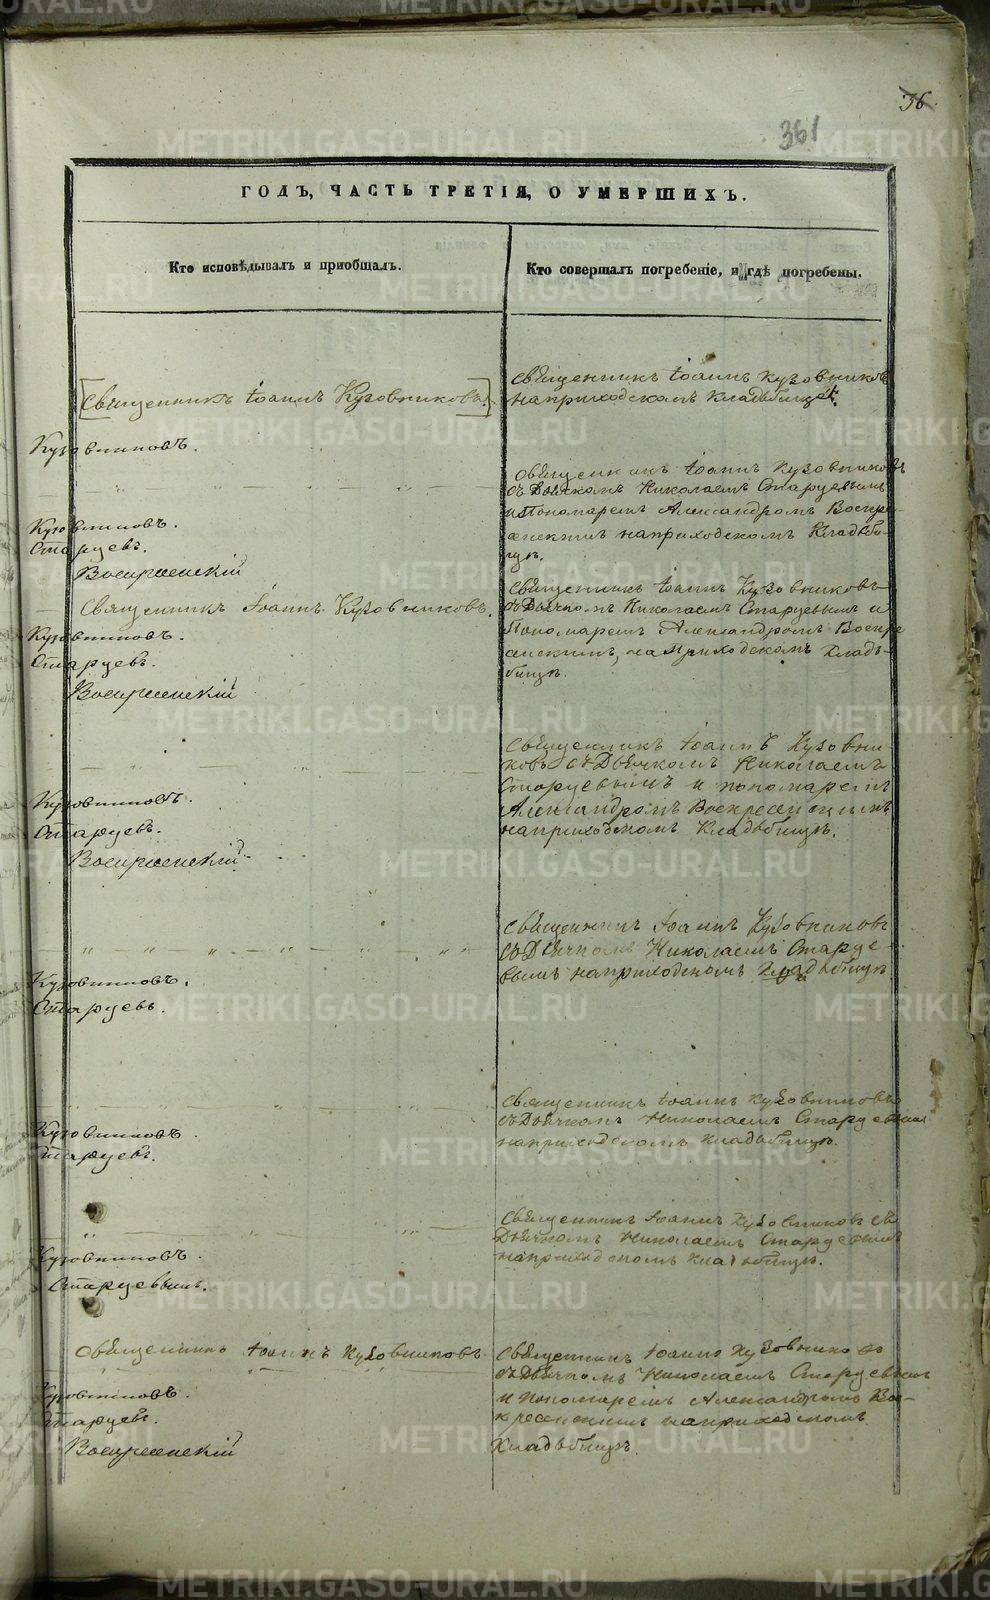 36
361
ГОДЪ, ЧАСТЬ ТРЕТІЯ, О УМЕРШИХЪ.
Кто исповѣдывалъ и пріобщалъ.
Кто совершалъ погребеніе, и гдѣ погребены.
[Священникъ Іоаннъ Кузовниковъ.]
Священникъ Іоаннъ Кузовниковъ
на приходскомъ Кладбищѣ.
Кузовниковъ.
Священникъ Іоаннъ Кузовниковъ
съ Дьячкомъ Николаемъ Старцевымъ
и Пономаремъ Александромъ Воскре-
сенскимъ на приходскомъ Кладби-
щѣ.
Кузовниковъ.
Старцевъ.
Воскресенскій
Священникъ Іоаннъ Кузовниковъ.
Священникъ Іоаннъ Кузовниковъ
съ Дьячкомъ Николаемъ Старцевымъ и
Пономаремъ Александромъ Воскре
сенскимъ, на приходскомъ Кладь-
бищѣ.
Кузовниковъ.
Старцевъ.
Воскресенскій
Священникъ Іоаннъ Кузовни
ковъ съ Дьячкомъ Николаемъ
Старцевымъ и пономаремъ
Александромъ Воскресенскимъ
на приходскомъ Кладьбищѣ.
Кузовниковъ.
Старцевъ.
Воскресенскій.
Священникъ Іоаннъ Кузовниковъ
съ Дьячкомъ Николаемъ Старце-
вымъ на приходскомъ Кладьбищѣ
Кузовниковъ.
Старцевъ.
Священникъ Іоаннъ Кузовниковъ
съ Дьячкомъ Николаемъ Старцевымъ
на приходскомъ Кладьбищѣ.
Кузовниковъ.
Старцевъ.
Священникъ Іоаннъ Кузовниковъ съ
Дьячкомъ Николаемъ Старцевымъ
на приходскомъ Кладьбищѣ.
Кузовниковъ.
Старцевымъ.
Священникъ Іоаннъ Кузовниковъ
Священникъ Іоаннъ Кузовниковъ
съ Дьячкомъ Николаемъ Старцевымъ
и пономаремъ Александромъ Вос-
кресенскимъ на приходскомъ
Кладьбищѣ.
Кузовниковъ.
Старцевъ.
Воскресенскій
METRIKI.GASO-URAL.RU